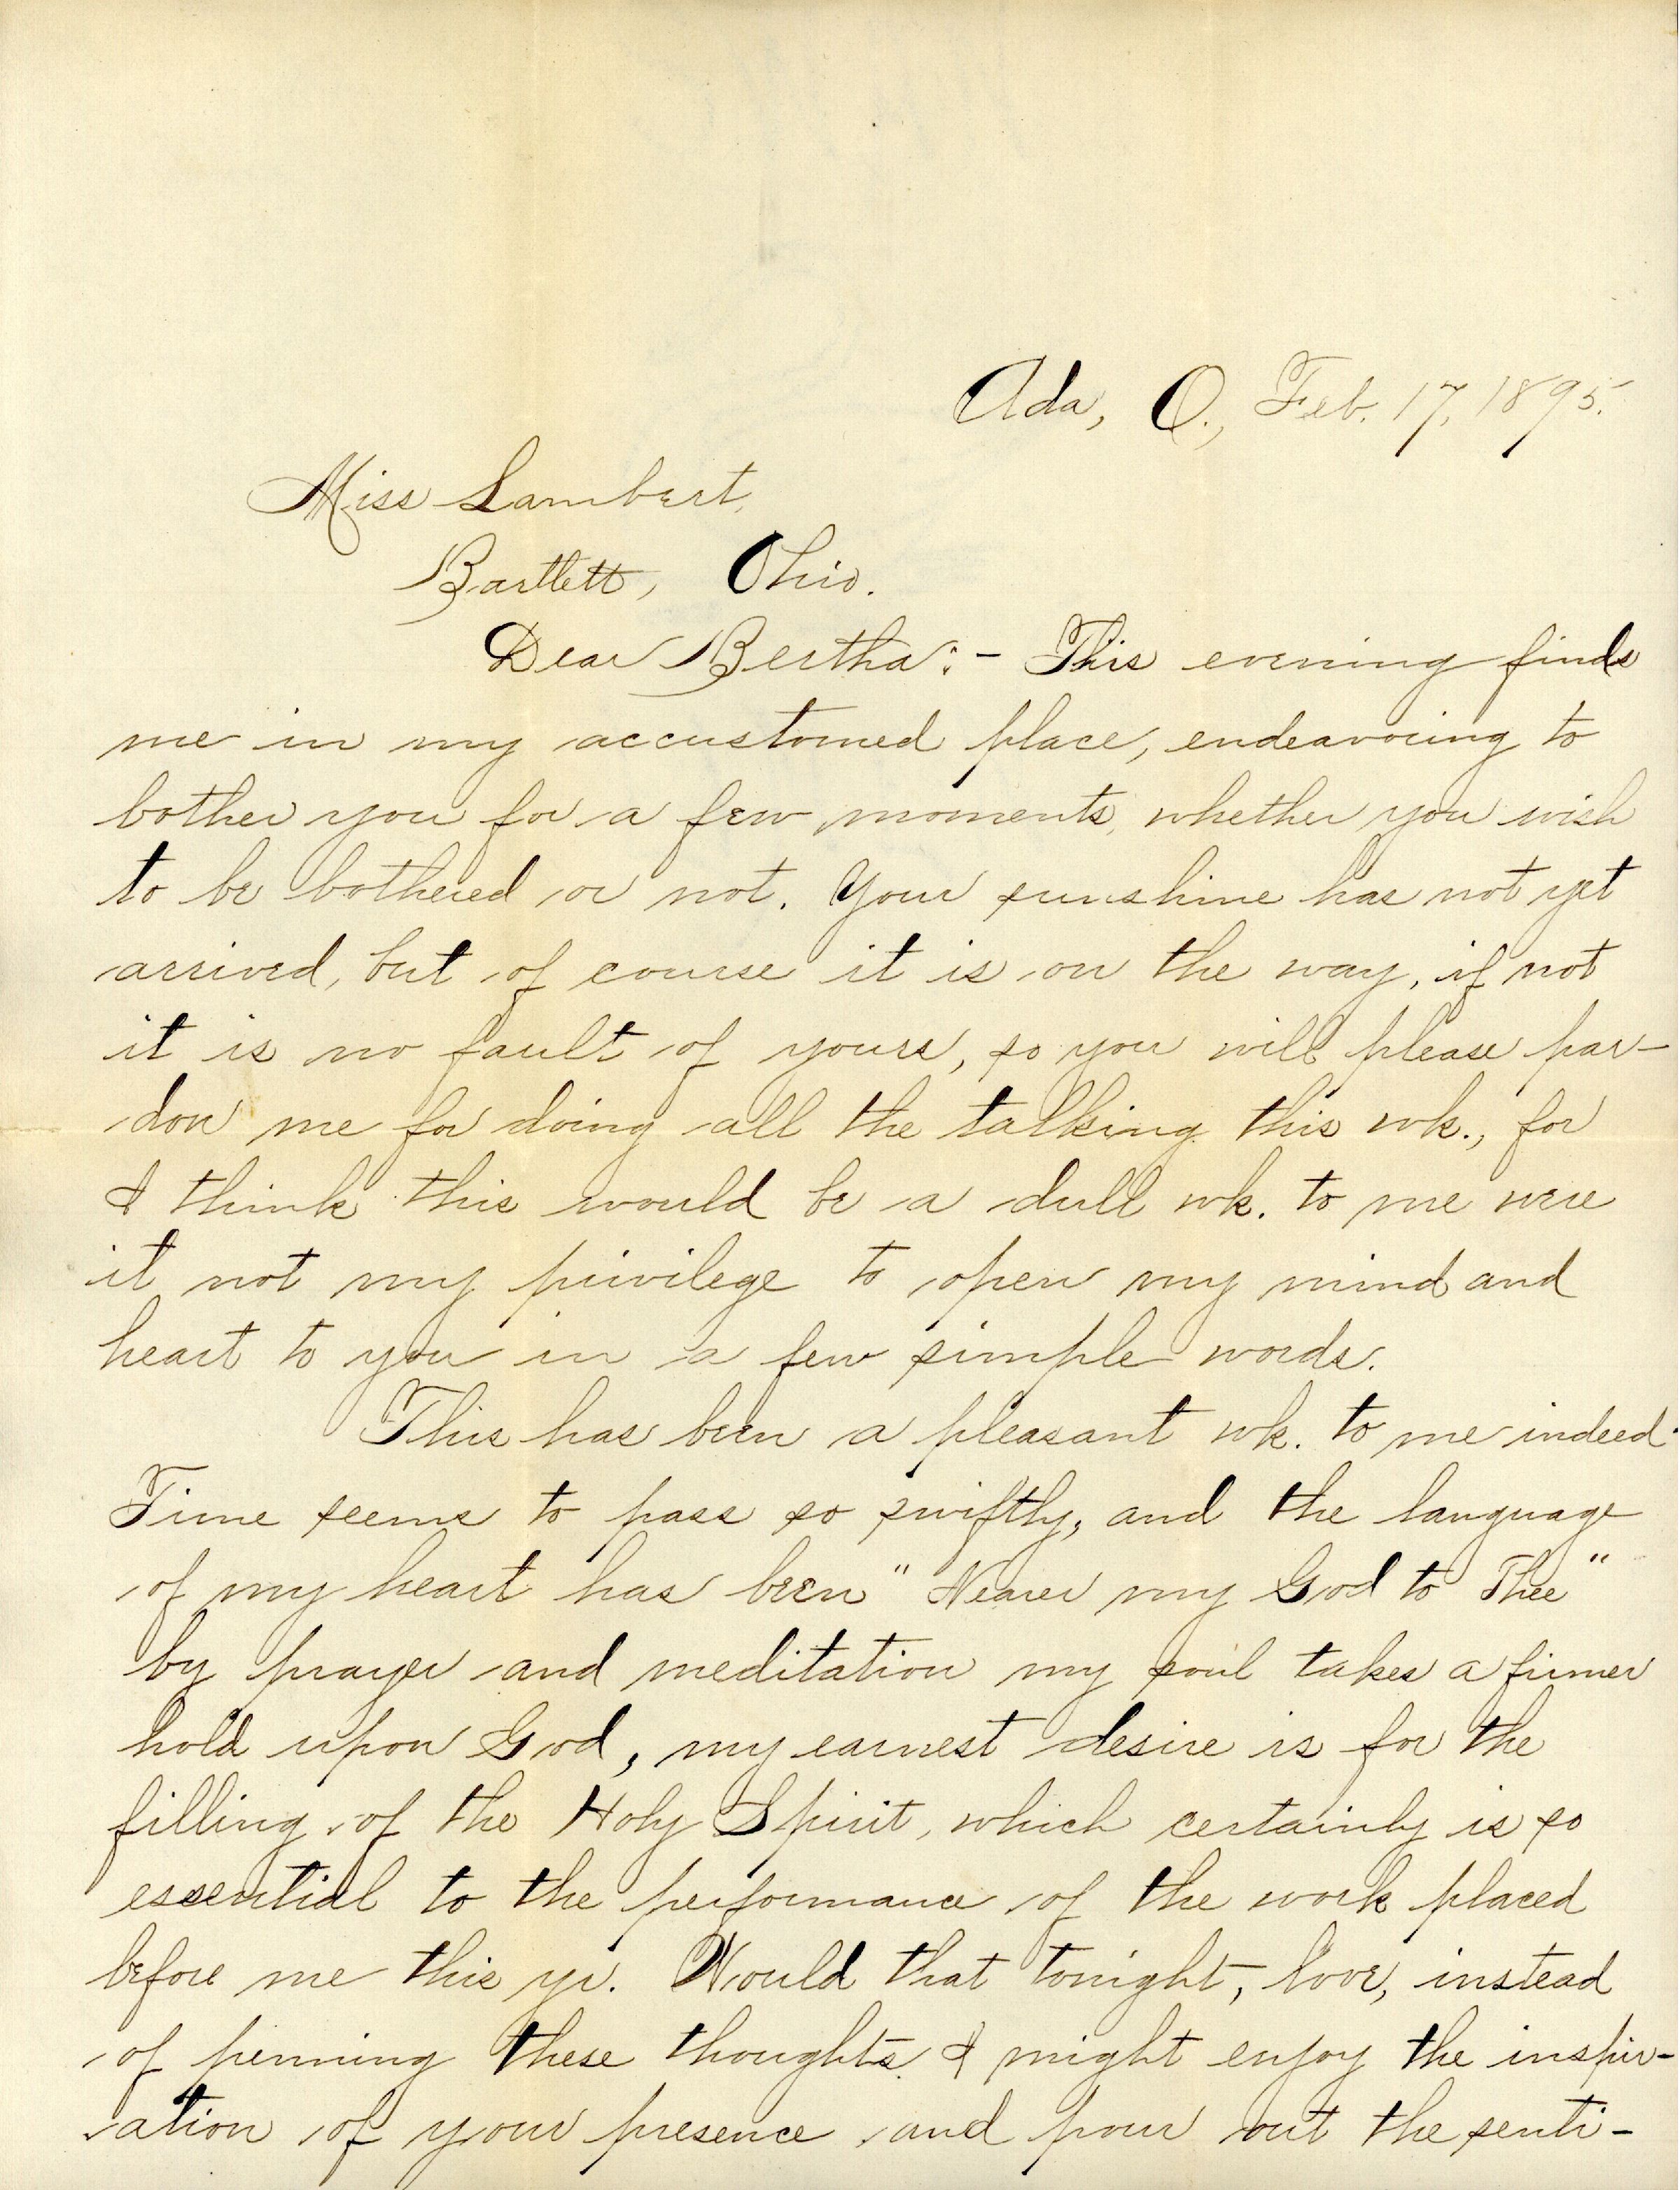 Ada, O., Feb. 17, 1895.
Miss Lambert,
Bartlett, Ohio.
Dear Bertha:- This evening finds
me in my accustomed place, endeavoring to
bother you for a few moments, whether you wish
to be bothered or not. Your sunshine has not yet
arrived, but of course it is on the way, if not
it is no fault of yours, so you will please par-
don me for doing all the talking this wk., for
I think this would be a dull wk. to me were
it not my privilege to open my mind and
heart to you in a few simple words.
This has been a pleasant wk. to me indeed.
Time seems to pass so swiftly, and the language
of my heart has been "Nearer my God to Thee"
by prayer and meditation my soul takes a firmer
hold upon God, my earnest desire is for the
filling of the Holy Spirit, which certainly is so
essential to the performance of the work placed
before me this yr. Would that tonight, love, instead
of penning these thoughts I might enjoy the inspir-
ation of your presence and pour out the senti-